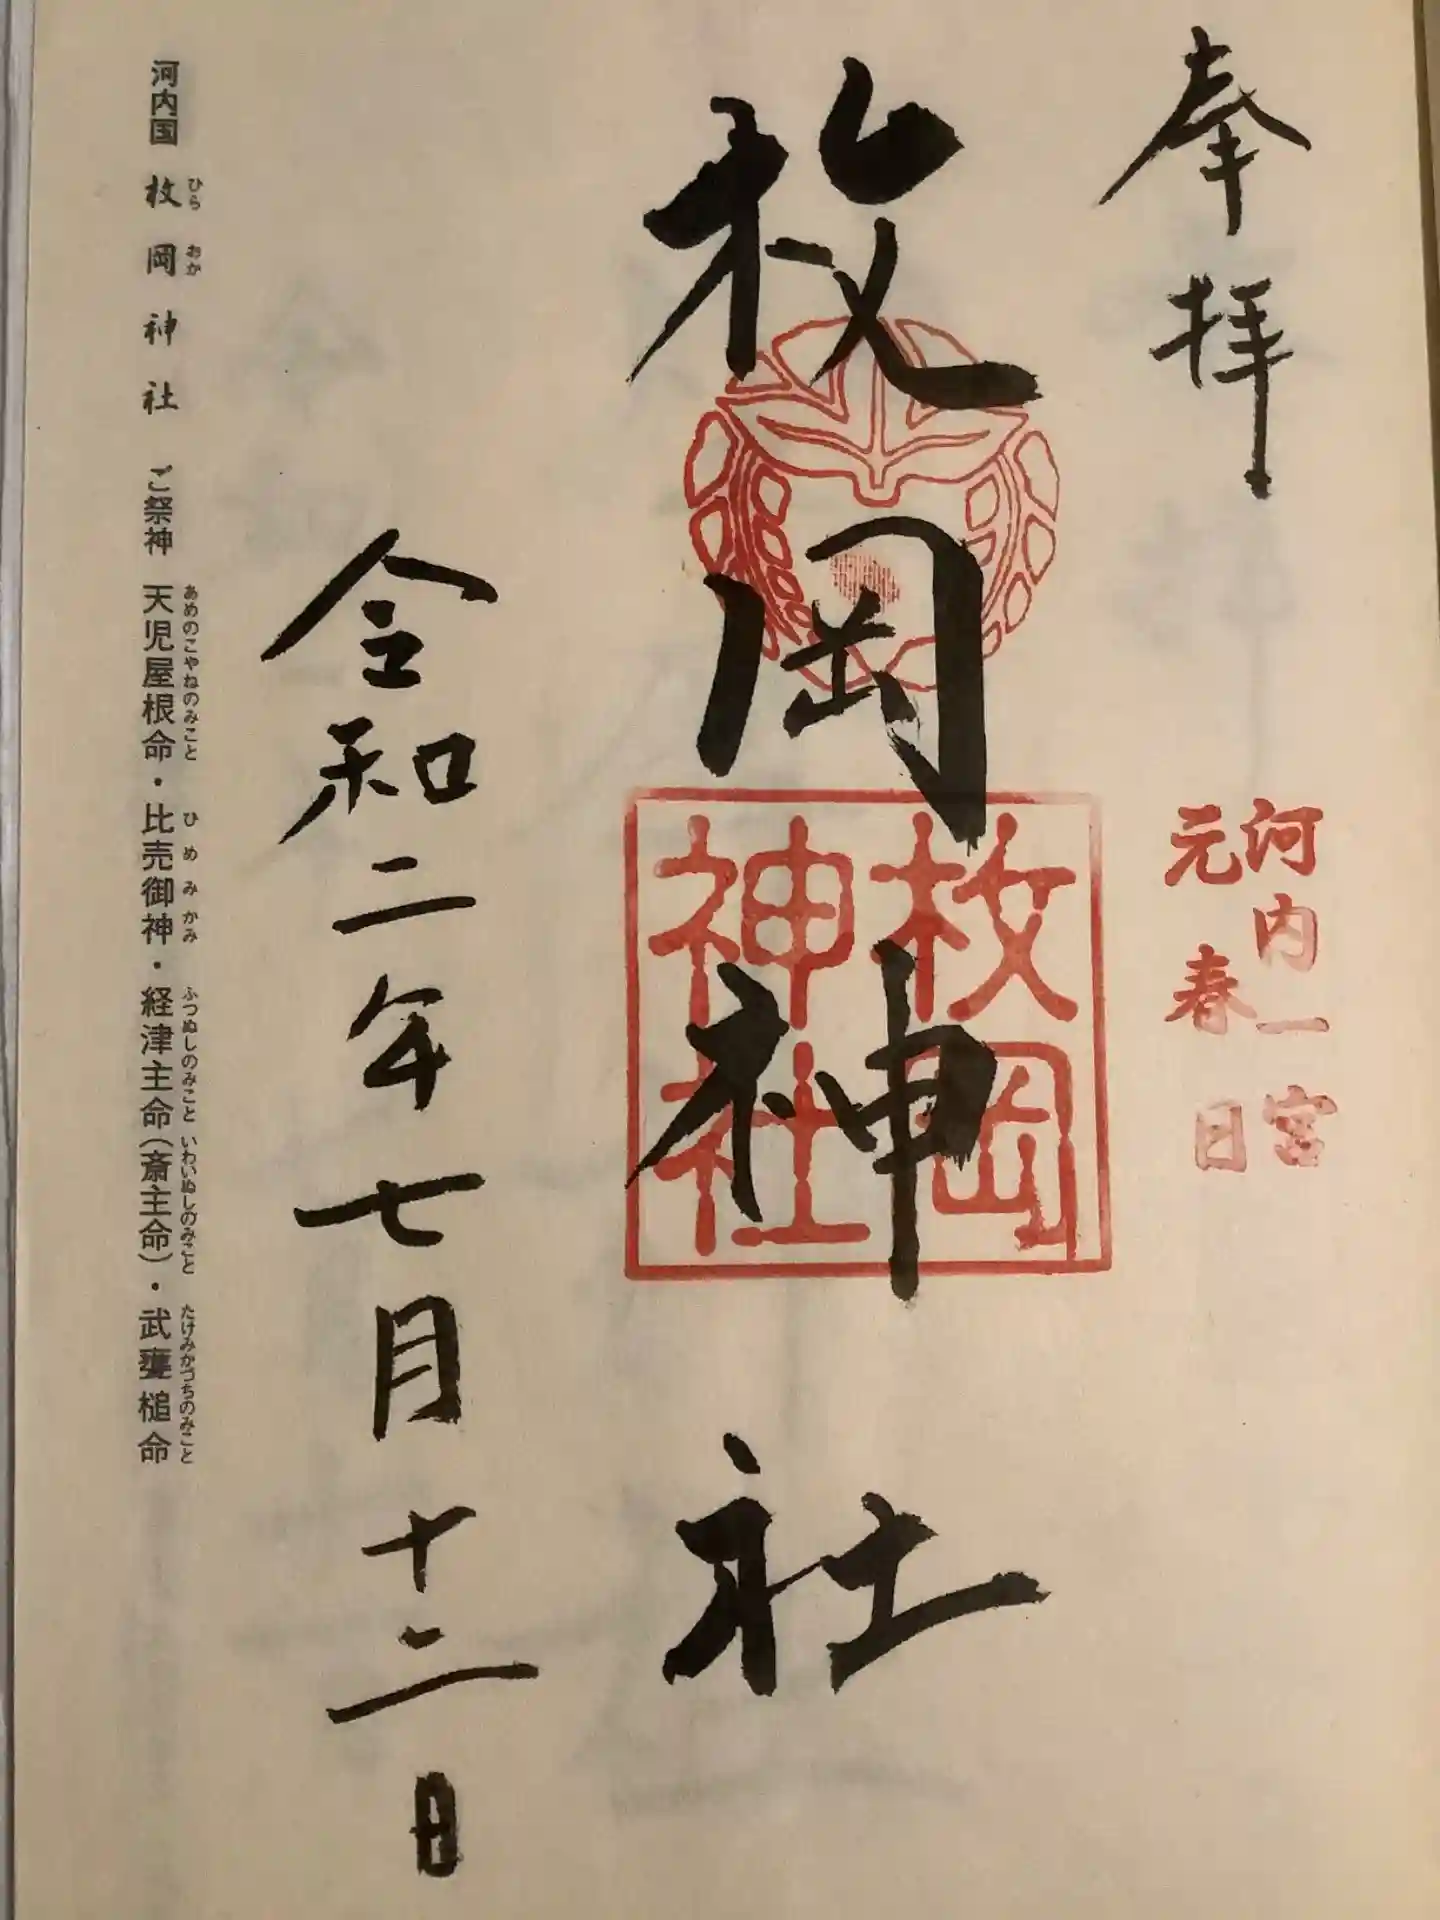 奉拝
河内一宮
元春日
枚岡神社
枚岡
神社
令和二年七月十二日
河内国 枚岡神社 ご祭神 天児屋根命・比売御神・経津主命(斎主命)・武甕槌命
ひら おか あめのこやねのみこと ひめみかみ ふつぬしのみこと いわいぬしのみこと たけみかづちのみこと